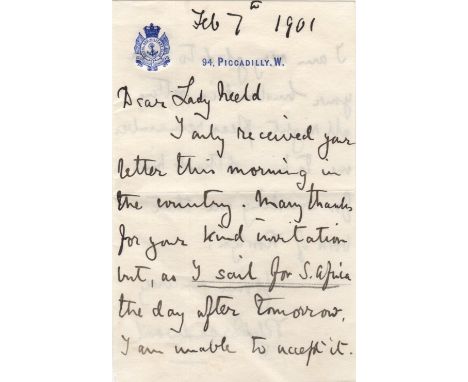 Feb 7th 1901
94, PICCADILLY. W.
Dear Lady Neeld
I only received your
letter this morning in
the country. Many thanks
for your kind invitation
but, as I sail for S. Africa
the day after tomorrow,
I am unable to accept it.